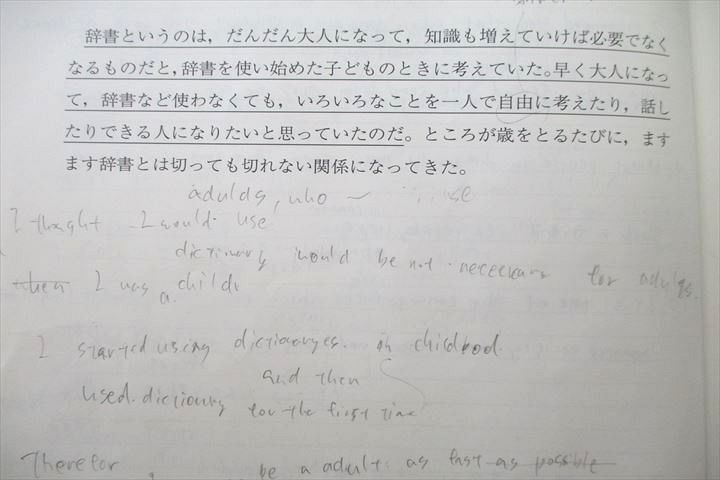 辞書というのは，だんだん大人になって，知識も増えていけば必要でなく
なるものだと，辞書を使い始めた子どものときに考えていた。早く大人になっ
て，辞書など使わなくても，いろいろなことを一人で自由に考えたり，話し
たりできる人になりたいと思っていたのだ。ところが歳をとるたびに，ます
ます辞書とは切っても切れない関係になってきた。
adulds, who use
I thoght I would use
dictionary would be not neceecary for adulds.
then I was a child
I started using dictionaryes. in childood.
and then
used dictionary for the first time
Therefor be a adults as fast as possible